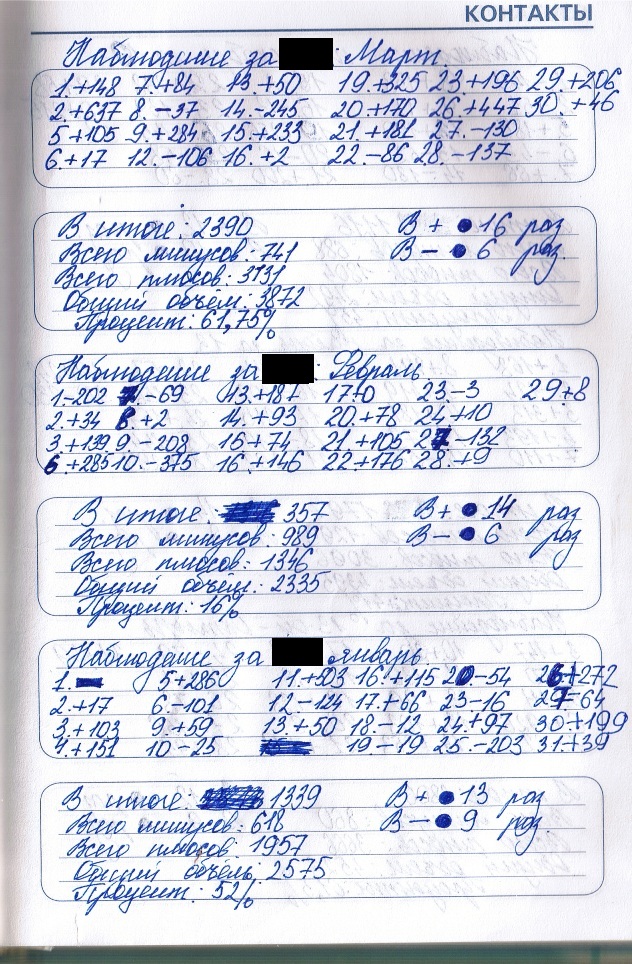 КОНТАКТЫ
Наблюдение за : Март.
1.+148 7.+84 13.+50 19.+325 23.+196 29.+206
2.+637 8.-37 14.-245 20.+170 26.+447 30.+46
5+105 9.+284 15.+233 21.+181 27.-130
6.+17 12.-106 16.+2 22.-86 28.-137
В итоге: 2390 В + 16 раз
Всего минусов: 741 В - 6 раз.
Всего плюсов: 3131
Общий объём: 3872
Процент: 61,75%
Наблюдение за : Февраль.
1-202 7.-69 13.+187 17+0 23.-3 29+8
2.+34 8+2 14.+93 20.+78 24+10
3+139 9.-208 16+74 21+105 27-132
6.+285 10.-375 16.+146 22.+176 28.+9
В итоге: 357 В+ 14 раз
Всего минусов: 989 В- 6 раз
Всего плюсов: 1346
Общий объём: 2335
Процент: 16%
Наблюдение за январь.
1. 5+286 11.+503 16.+115 20-54 26+272
2.+17 6.-101 12-124 17.+66 23-16 27-64
3.+103 9.+59 13.+50 18.-12 24.+97 30+199
4.+151 10-25 19.-19 25.-203 31.+39
В итоге: 1339 В+ 13 раз
Всего минусов: 618 В- 9 раз.
Всего плюсов: 1957
Общий объём: 2575
Процент: 52%